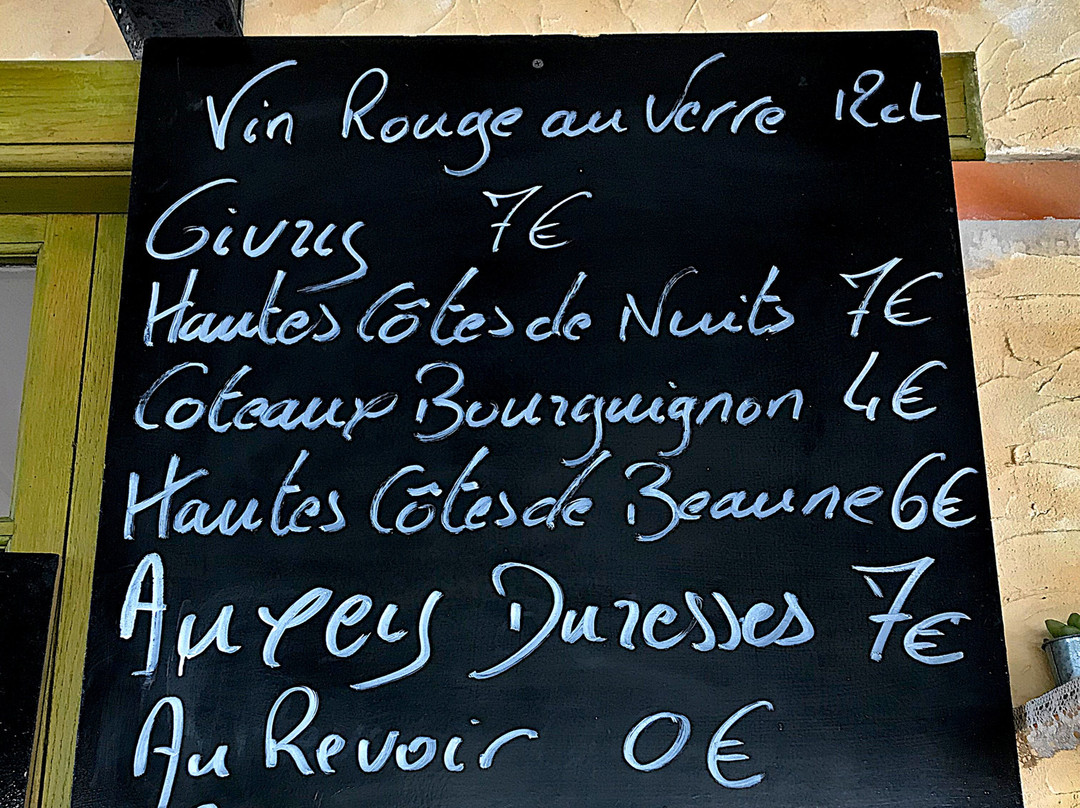 Vin Rouge au Verre 12cL
Givry 7€
Hautes Côtes de Nuits 7€
Coteaux Bourguignon 4€
Hautes Côtes de Beaune 6€
Auxey Duresses 7€
Au Revoir 0€